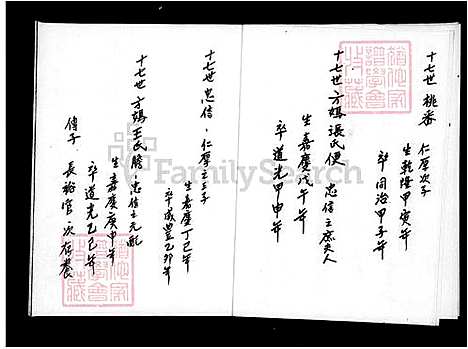 十七世 桃泰
仁厚次子
生乾隆甲寅年
卒同治甲子年
十七世方媽張氏便 忠信之庶夫人
生嘉慶戊午年
卒道光甲申年
十七世忠信，仁厚之三子
生嘉慶丁巳年
卒咸豐乙卯年
十七世方媽王氏勝 忠信之元配
生嘉慶庚申年
卒道光乙巳年
傳子 長裕官 次存農
FamilySearch